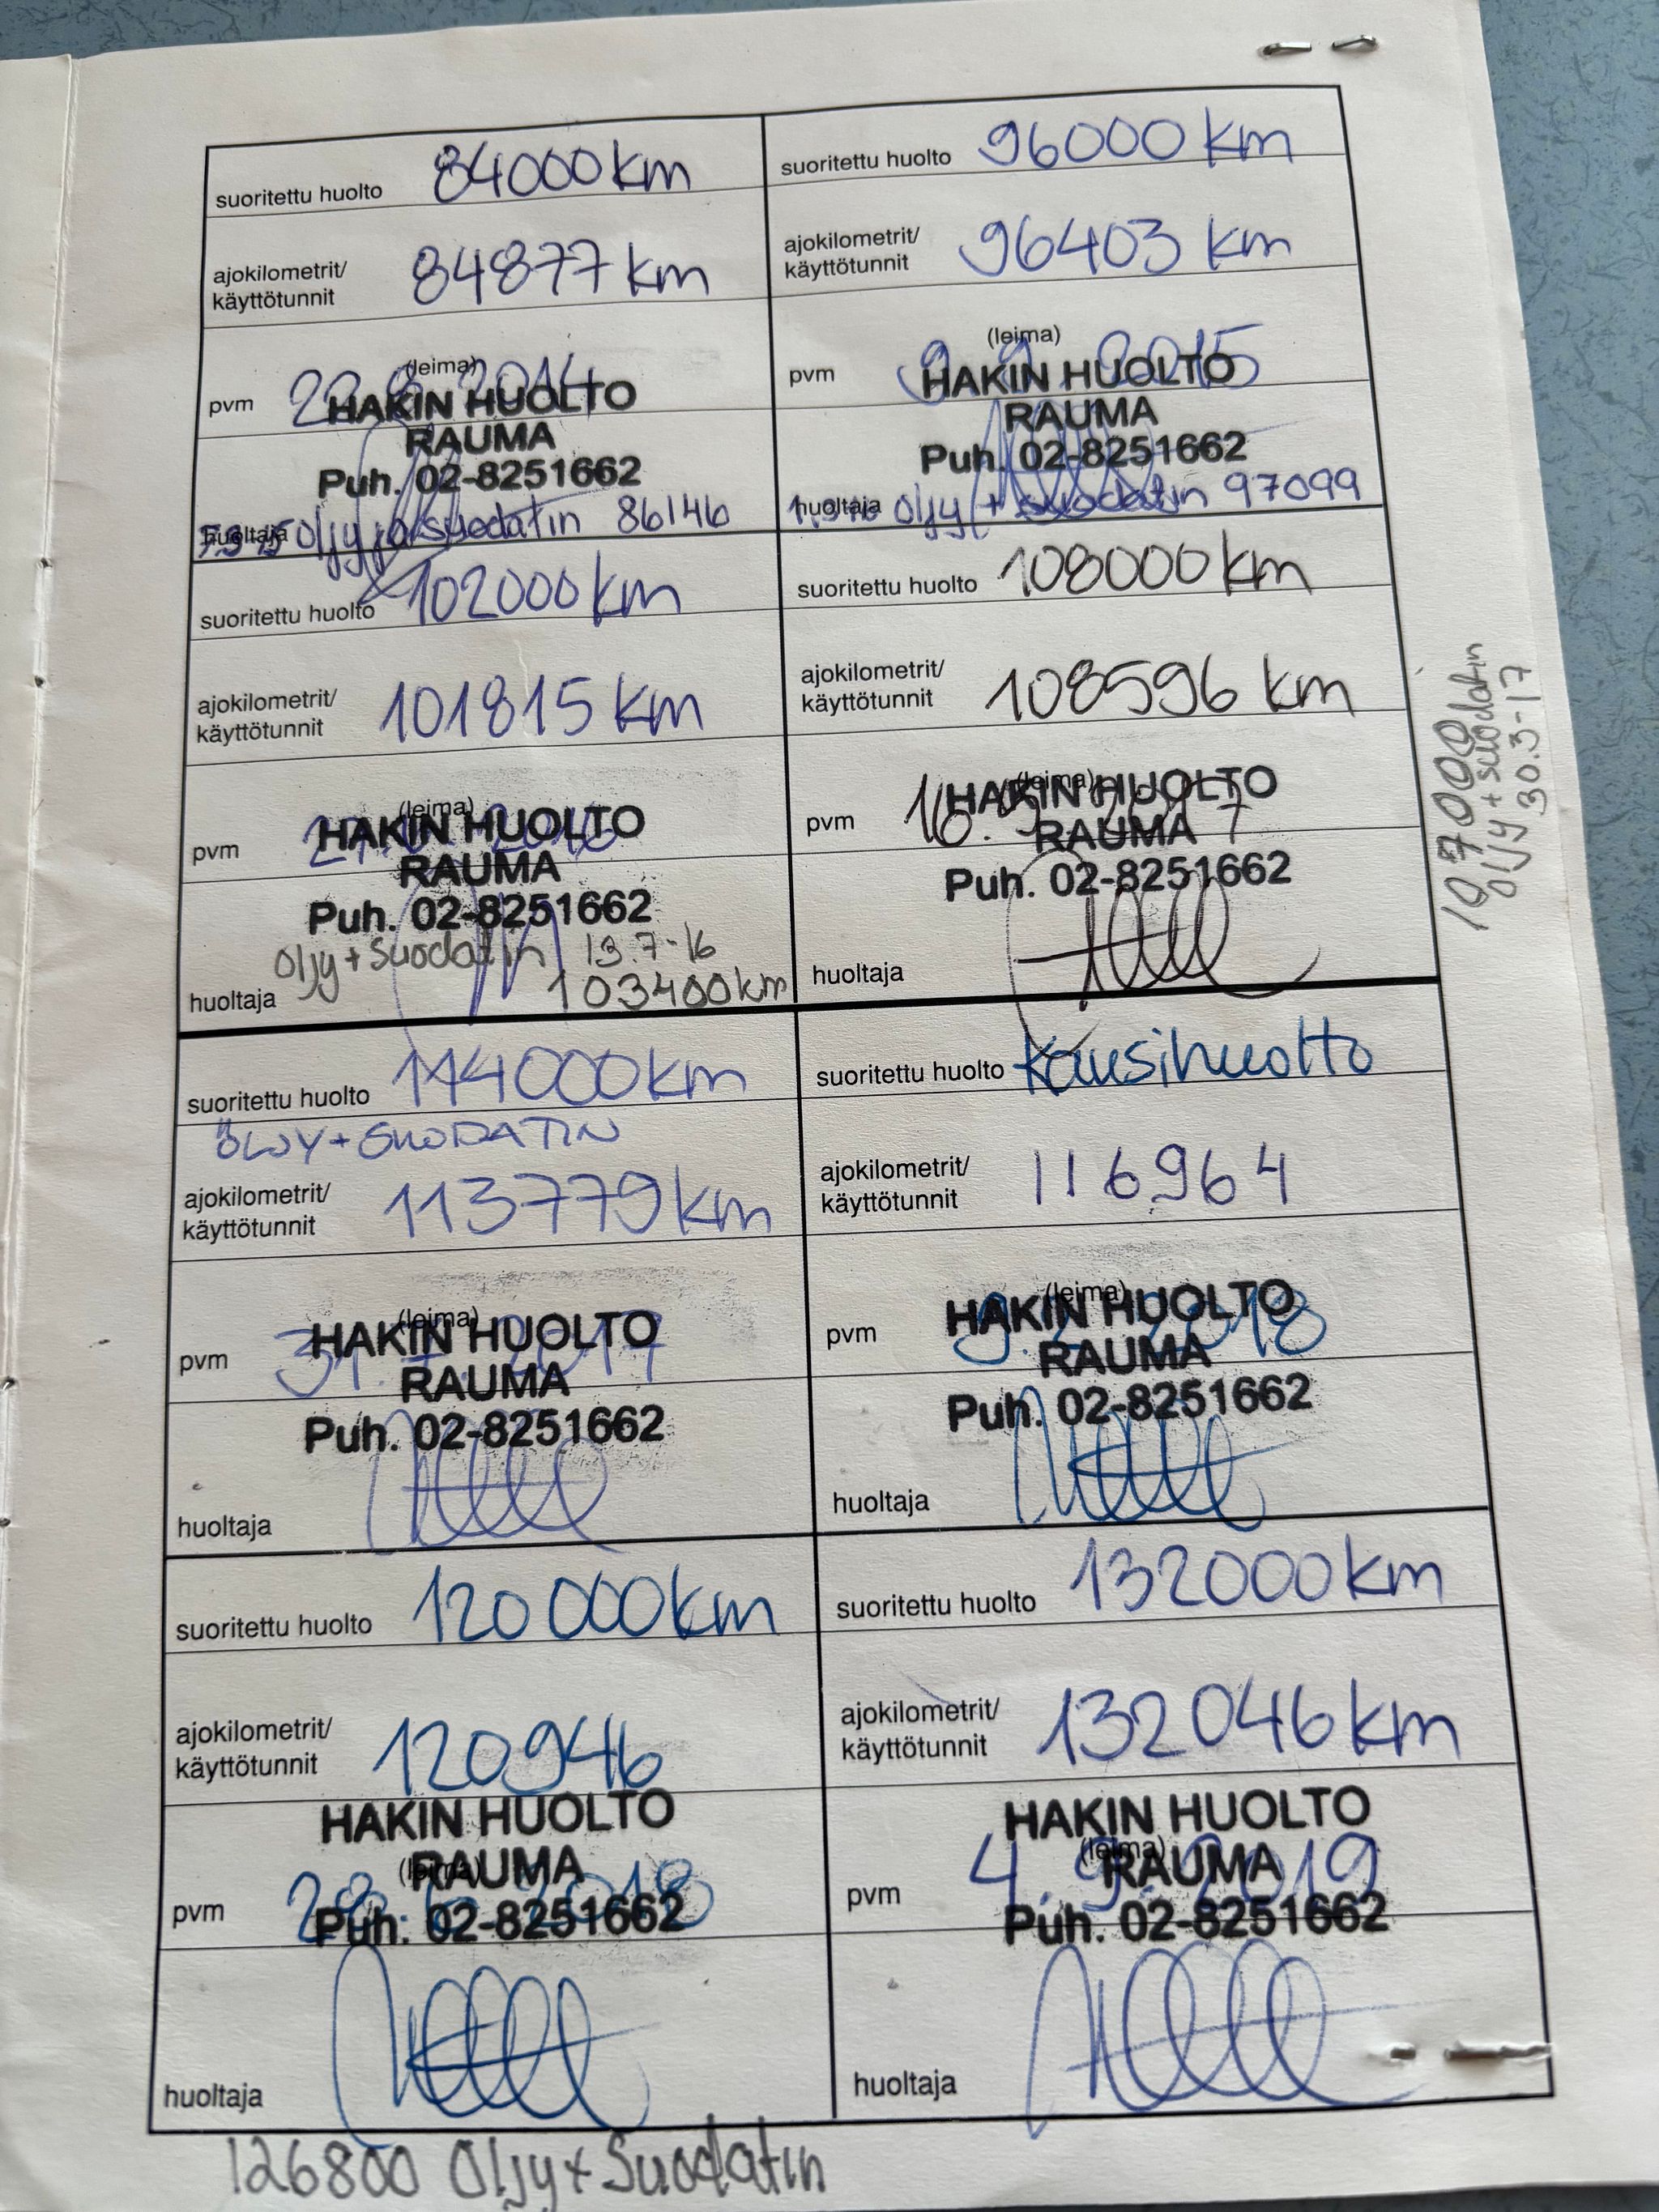 suoritettu huolto 84000 km
ajokilometrit/
käyttötunnit 84877 km
(leima)
pvm 22.8.2014
HAKIN HUOLTO
RAUMA
Puh. 02-8251662
huoltaja Oljy ja suodatin 86146
suoritettu huolto 96000 km
ajokilometrit/
käyttötunnit 96403 km
(leima)
pvm 2015
HAKIN HUOLTO
RAUMA
Puh. 02-8251662
huoltaja Oljy + suodatin 97099
suoritettu huolto 102000 km
ajokilometrit/
käyttötunnit 101815 km
(leima)
pvm 2016
HAKIN HUOLTO
RAUMA
Puh. 02-8251662
Oljy + Suodatin 13.7-16
huoltaja 103400 km
suoritettu huolto 108000 km
ajokilometrit/
käyttötunnit 108596 km
(leima)
pvm 16.
HAKIN HUOLTO
RAUMA
Puh. 02-8251662
huoltaja
107000
oljy + suodatin
30.3-17
suoritettu huolto 114000 km
ÖLJY + SUODATIN
ajokilometrit/
käyttötunnit 113779 km
(leima)
pvm 31. 2017
HAKIN HUOLTO
RAUMA
Puh. 02-8251662
huoltaja
suoritettu huolto Kausihuolto
ajokilometrit/
käyttötunnit 116964
(leima)
pvm 2018
HAKIN HUOLTO
RAUMA
Puh. 02-8251662
huoltaja
suoritettu huolto 120000 km
ajokilometrit/
käyttötunnit 120946
HAKIN HUOLTO
(leima)
RAUMA
pvm 2018
Puh. 02-8251662
huoltaja
suoritettu huolto 132000 km
ajokilometrit/
käyttötunnit 132046 km
HAKIN HUOLTO
(leima)
RAUMA
pvm 4.9.2019
Puh. 02-8251662
huoltaja
126800 Oljy + Suodatin